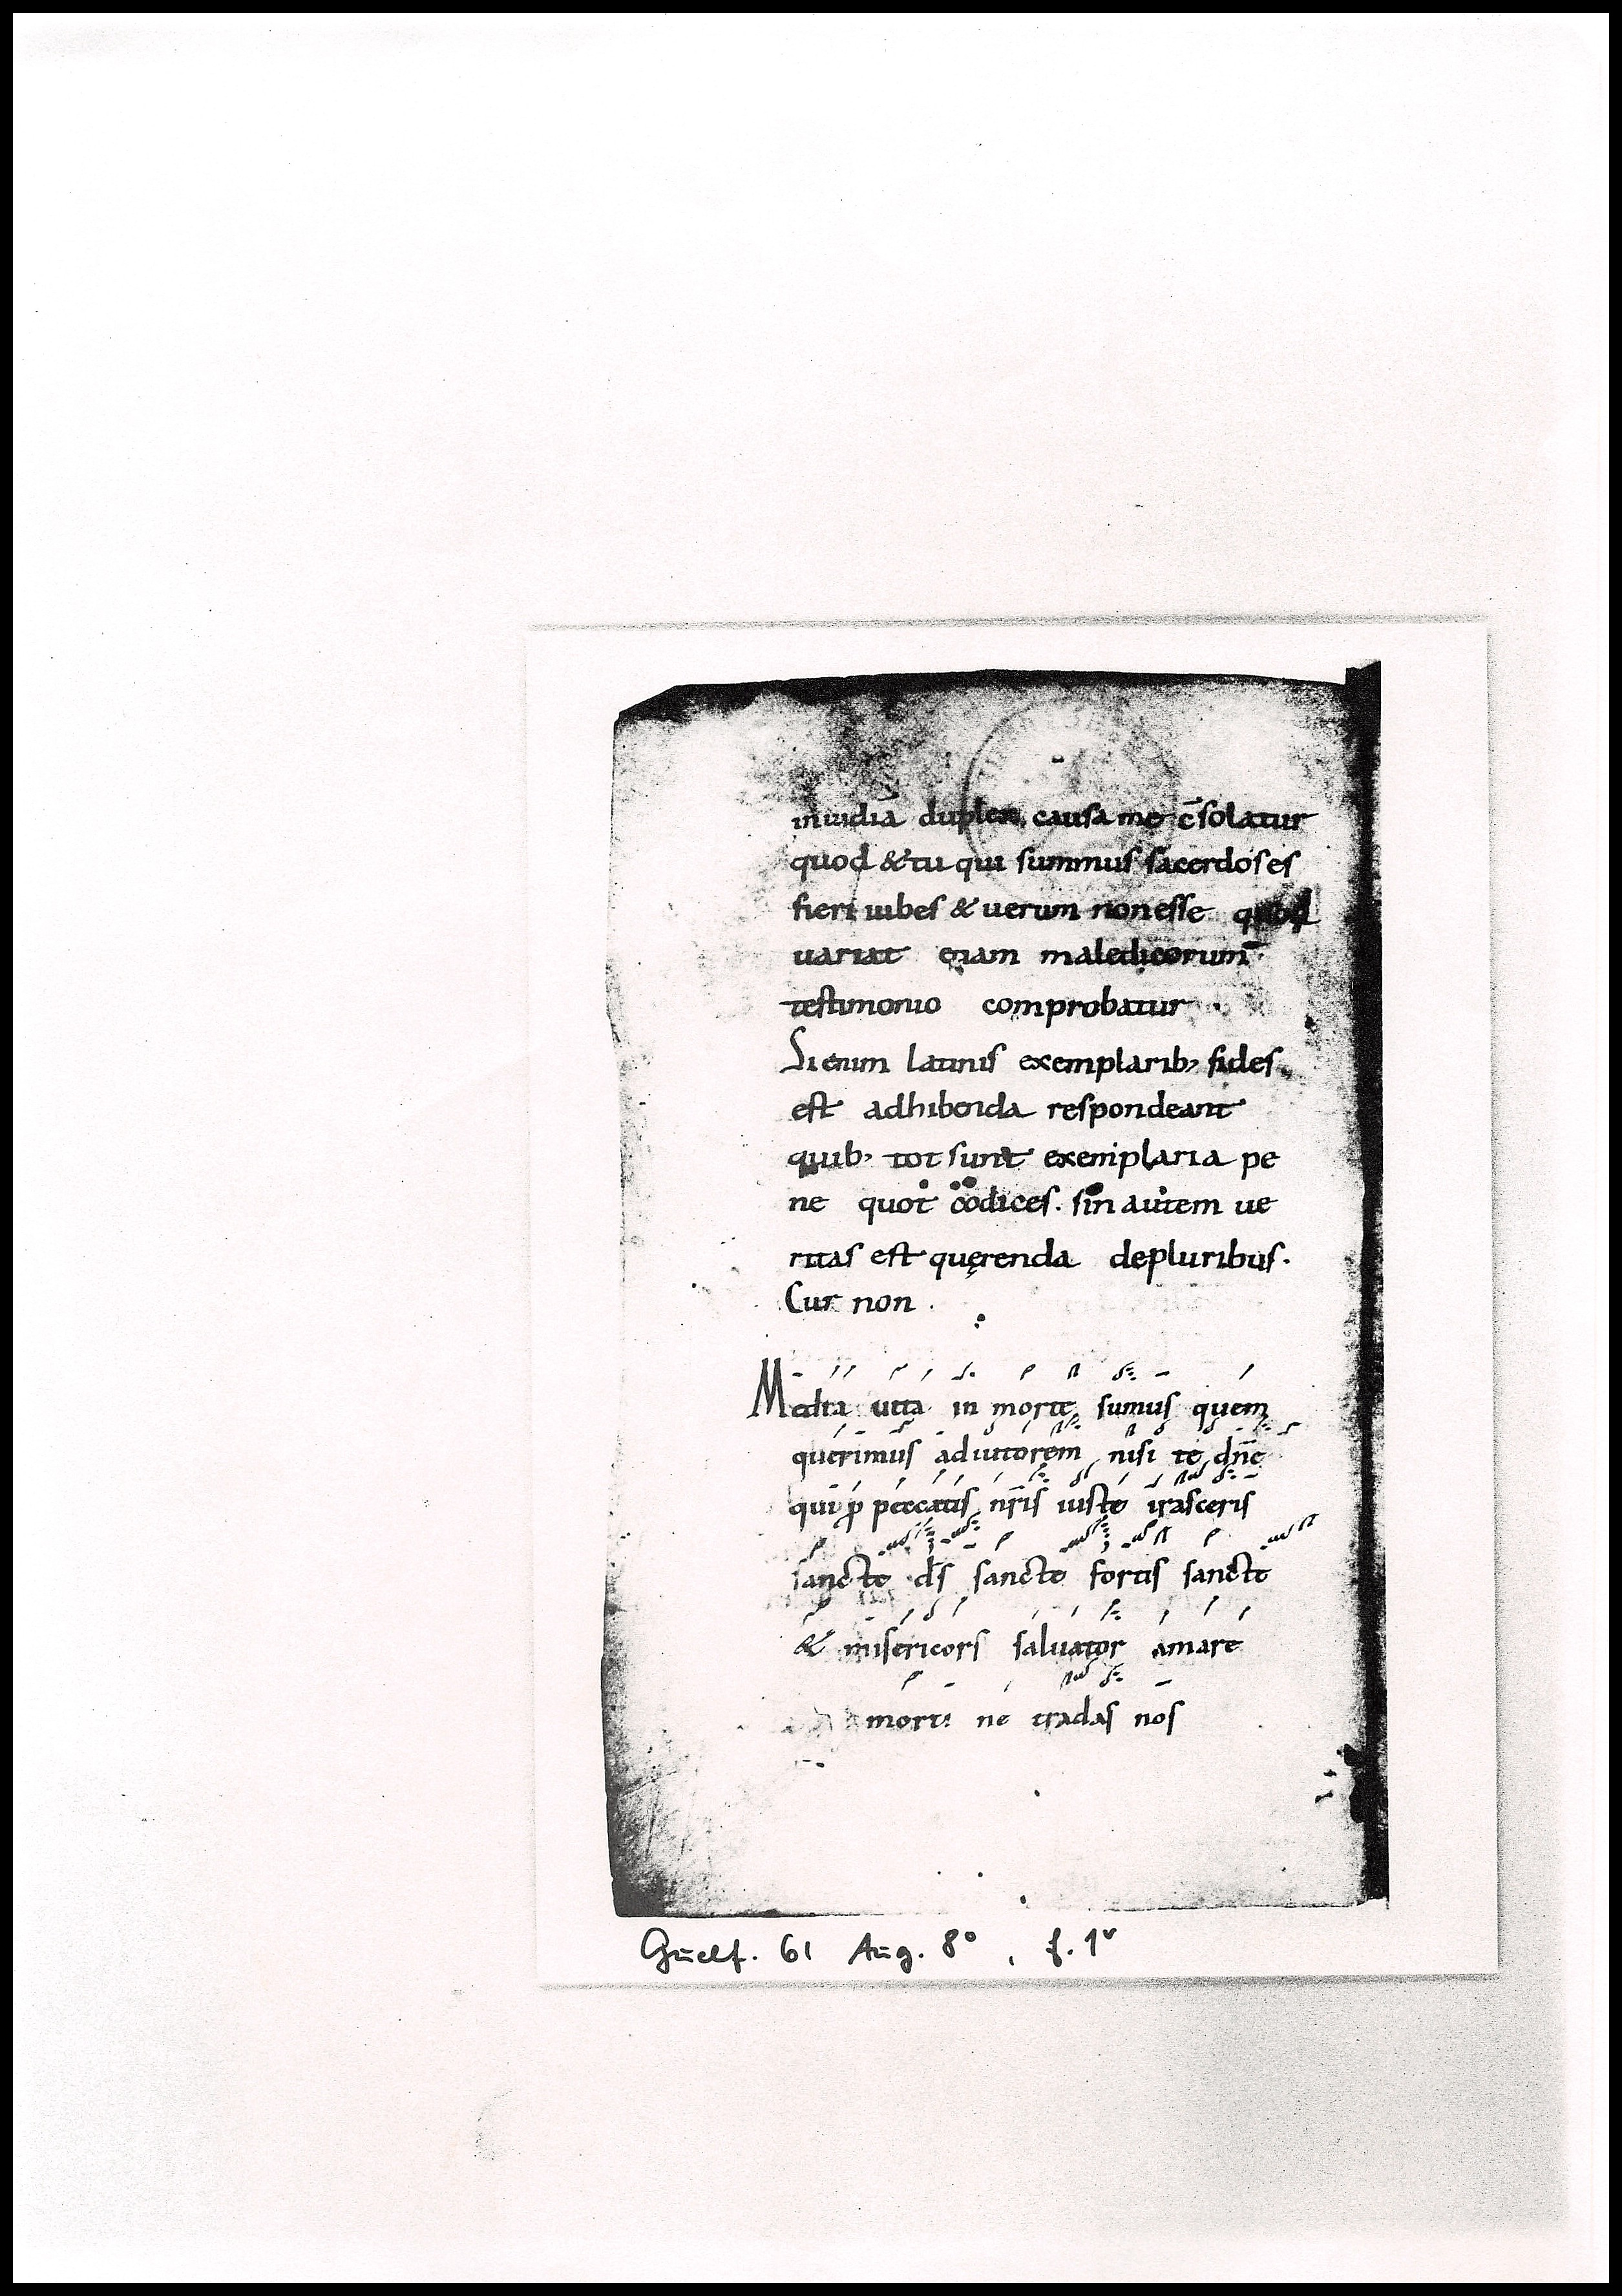 inuidiā duplex causa me c̄solatur
quod & tu qui summus sacerdos es
fieri iubes & uerum non esse quod
uariat etiam maledicorum
testimonio comprobatur.
Si enim latinis exemplarib; fides
est adhibenda respondeant
quib; tot sunt exemplaria pe
ne quot codices. sin autem ue
ritas est quęrenda de pluribus.
Cur non.
Media uita in morte sumus quem
querimus adiutorem nisi te dn̄e
qui p̄ peccatis nr̄is iuste irasceris
sancte ds̄ sancte fortis sancte
& misericors saluator amare
morti ne tradas nos
Guelf. 61 Aug. 8°, f. 1v